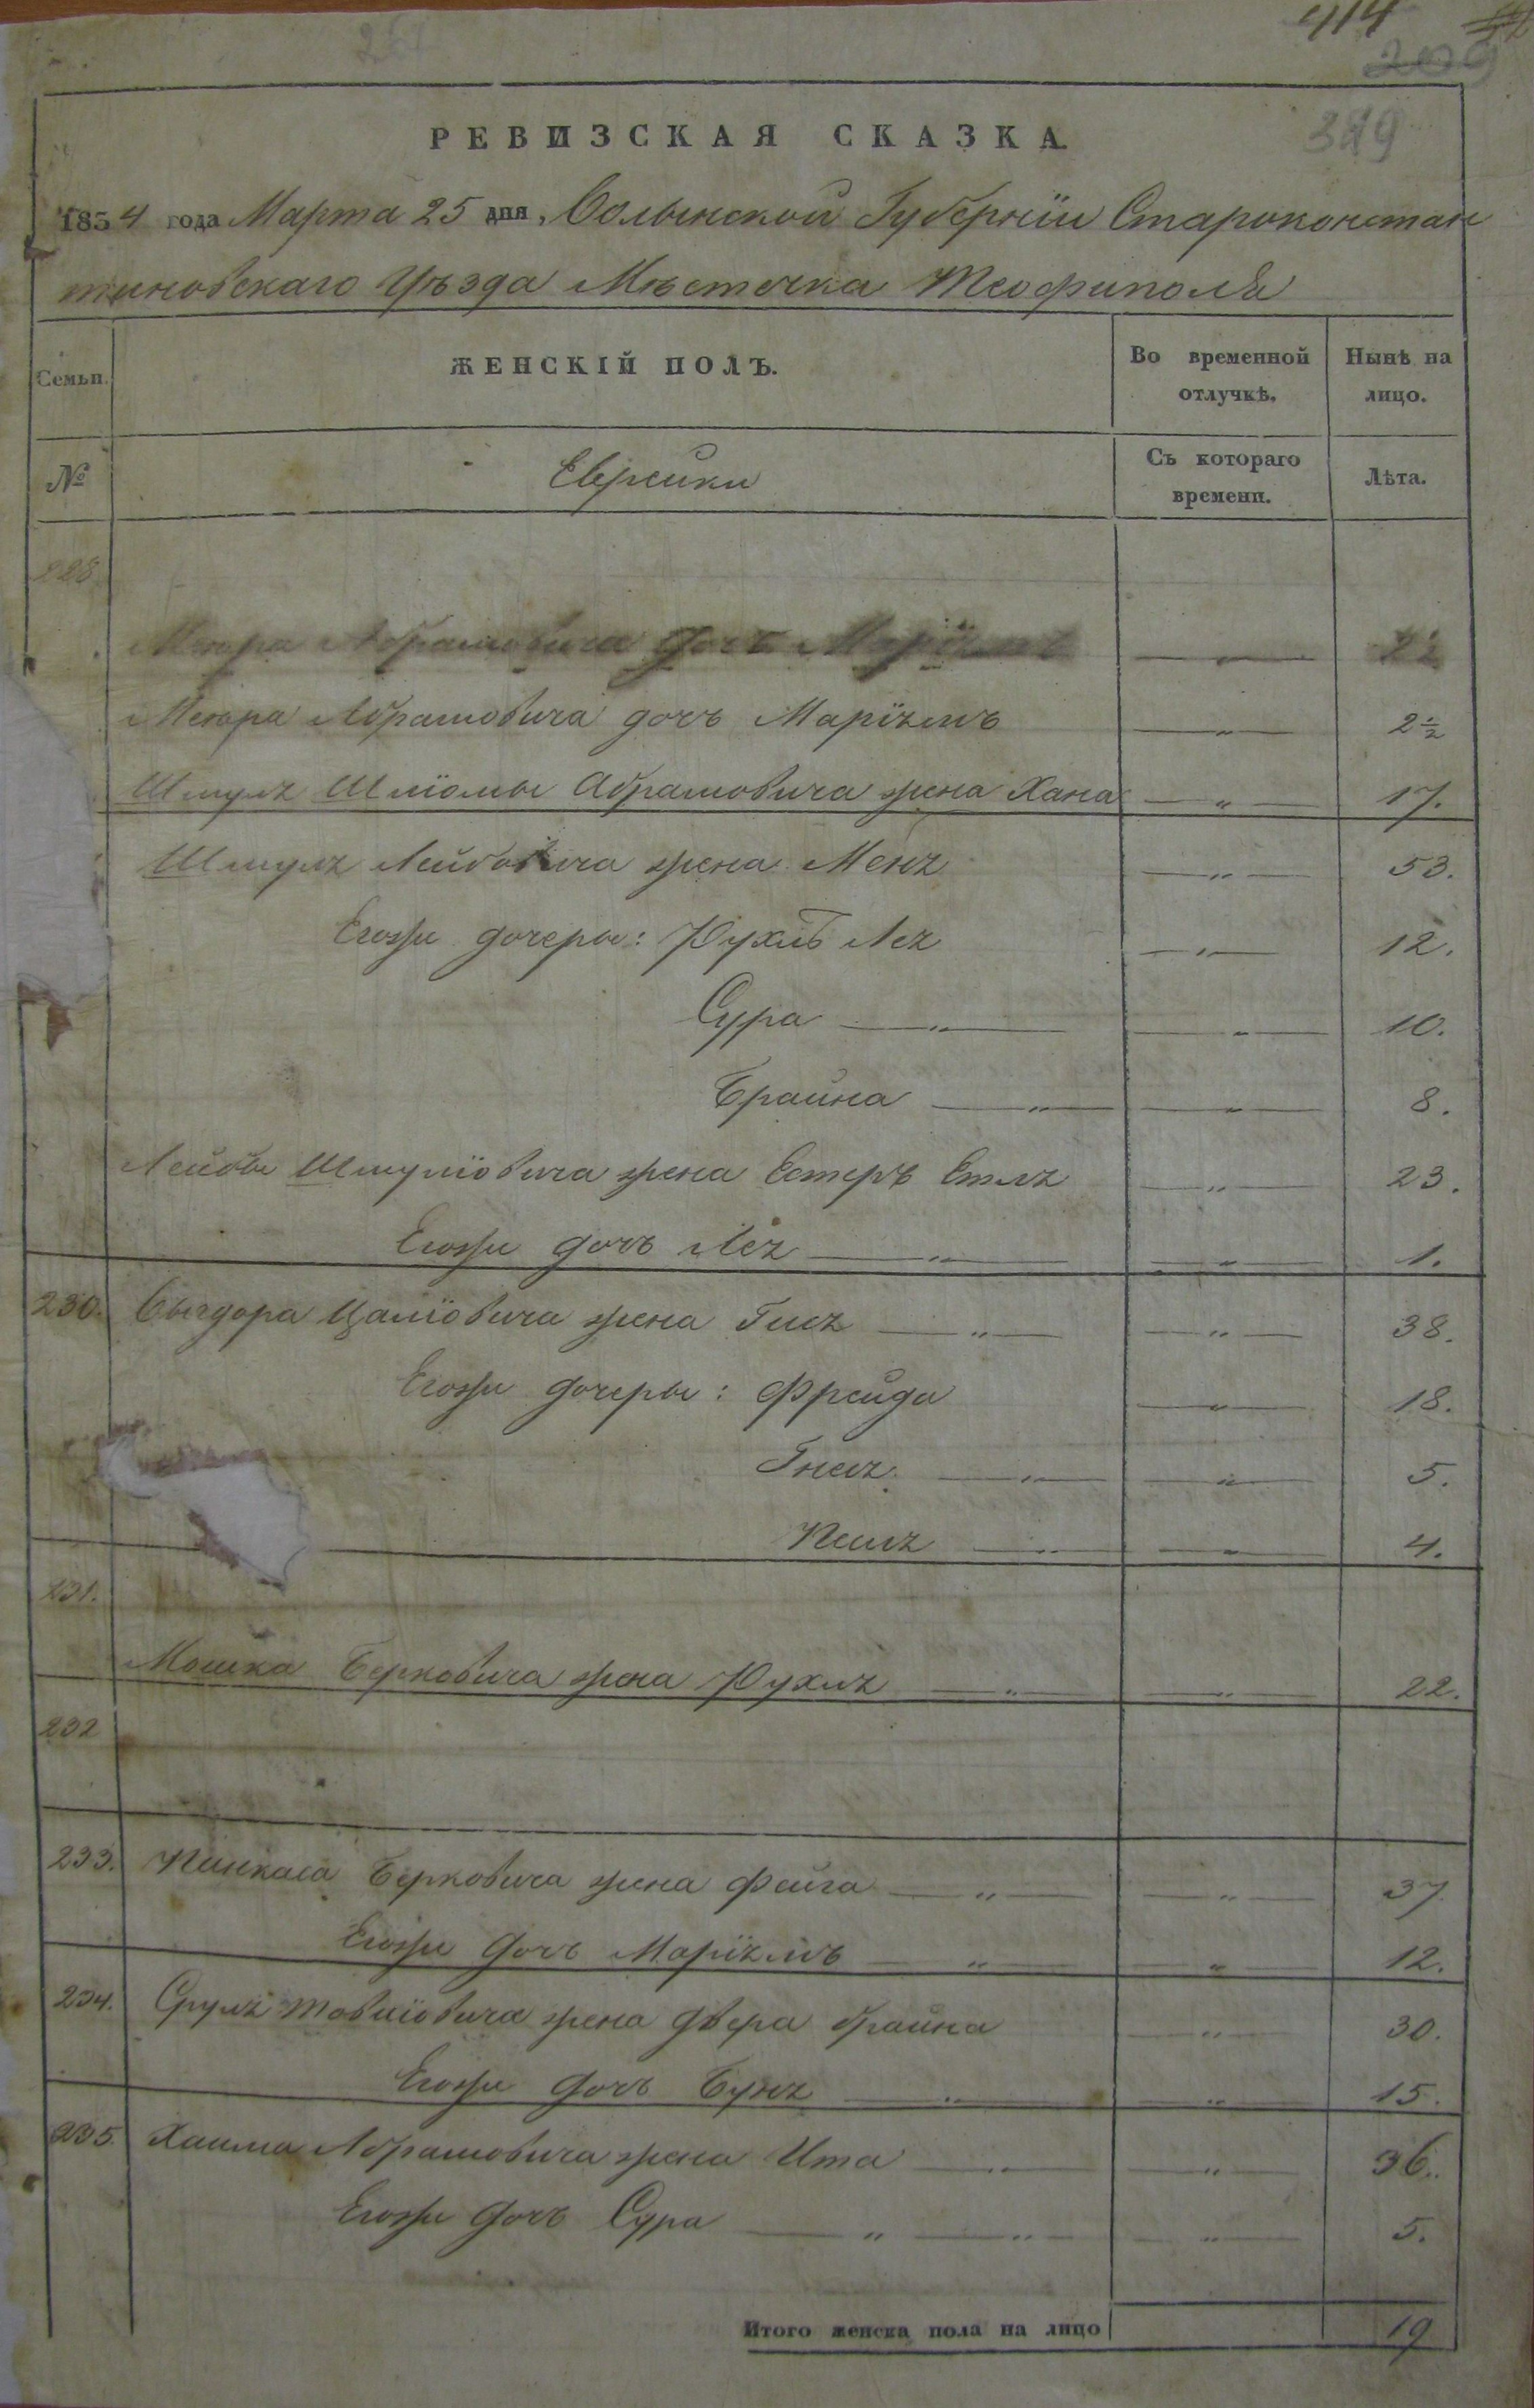 414
209
319
РЕВИЗСКАЯ СКАЗКА.
1854 года Марта 25 дня, Волынской Губерніи Староконстан
тиновскаго Уѣзда Мѣстечка Теофиполя
Семьи.
ЖЕНСКІЙ ПОЛЪ.
Во временной отлучкѣ.
Нынѣ на лицо.
№
Еврейки
Съ котораго времени.
Лѣта.
228
Меера Абрамовича дочь Маріямъ — „ —
Меера Абрамовича дочь Маріямъ — „ — 2½
Шмуля Шліомы Абрамовича жена Хана — „ — 17.
Шмуля Лейбовича жена Меня — „ — 53.
Егожъ дочеры: Рухль Лея — „ — 12.
Сура — „ — — „ — 10.
Брайна — „ — — „ — 8.
Лейбы Шмуліовича жена Естеръ Етля — „ — 23.
Егожъ дочь Лея — „ — — „ — 1.
230. Выгдора Цаліовича жена Гися — „ — — „ — 38.
Егожъ дочеры: Фрейда — „ — 18.
Гнеся — „ — — „ — 5.
Песля — „ — — „ — 4.
231.
Мошка Берковича жена Рухля — „ — — „ — 22.
232
233. Пинкаса Берковича жена Фейга — „ — — „ — 37.
Егожъ дочь Маріямъ — „ — — „ — 12.
234. Сруля Товшіовича жена Двера Брайна — „ — 30.
Егожъ дочь Буня — „ — — „ — 15.
235. Хаима Абрамовича жена Ита — „ — — „ — 36.
Егожъ дочь Сура — „ — „ — — „ — 5.
Итого женска пола на лицо 19